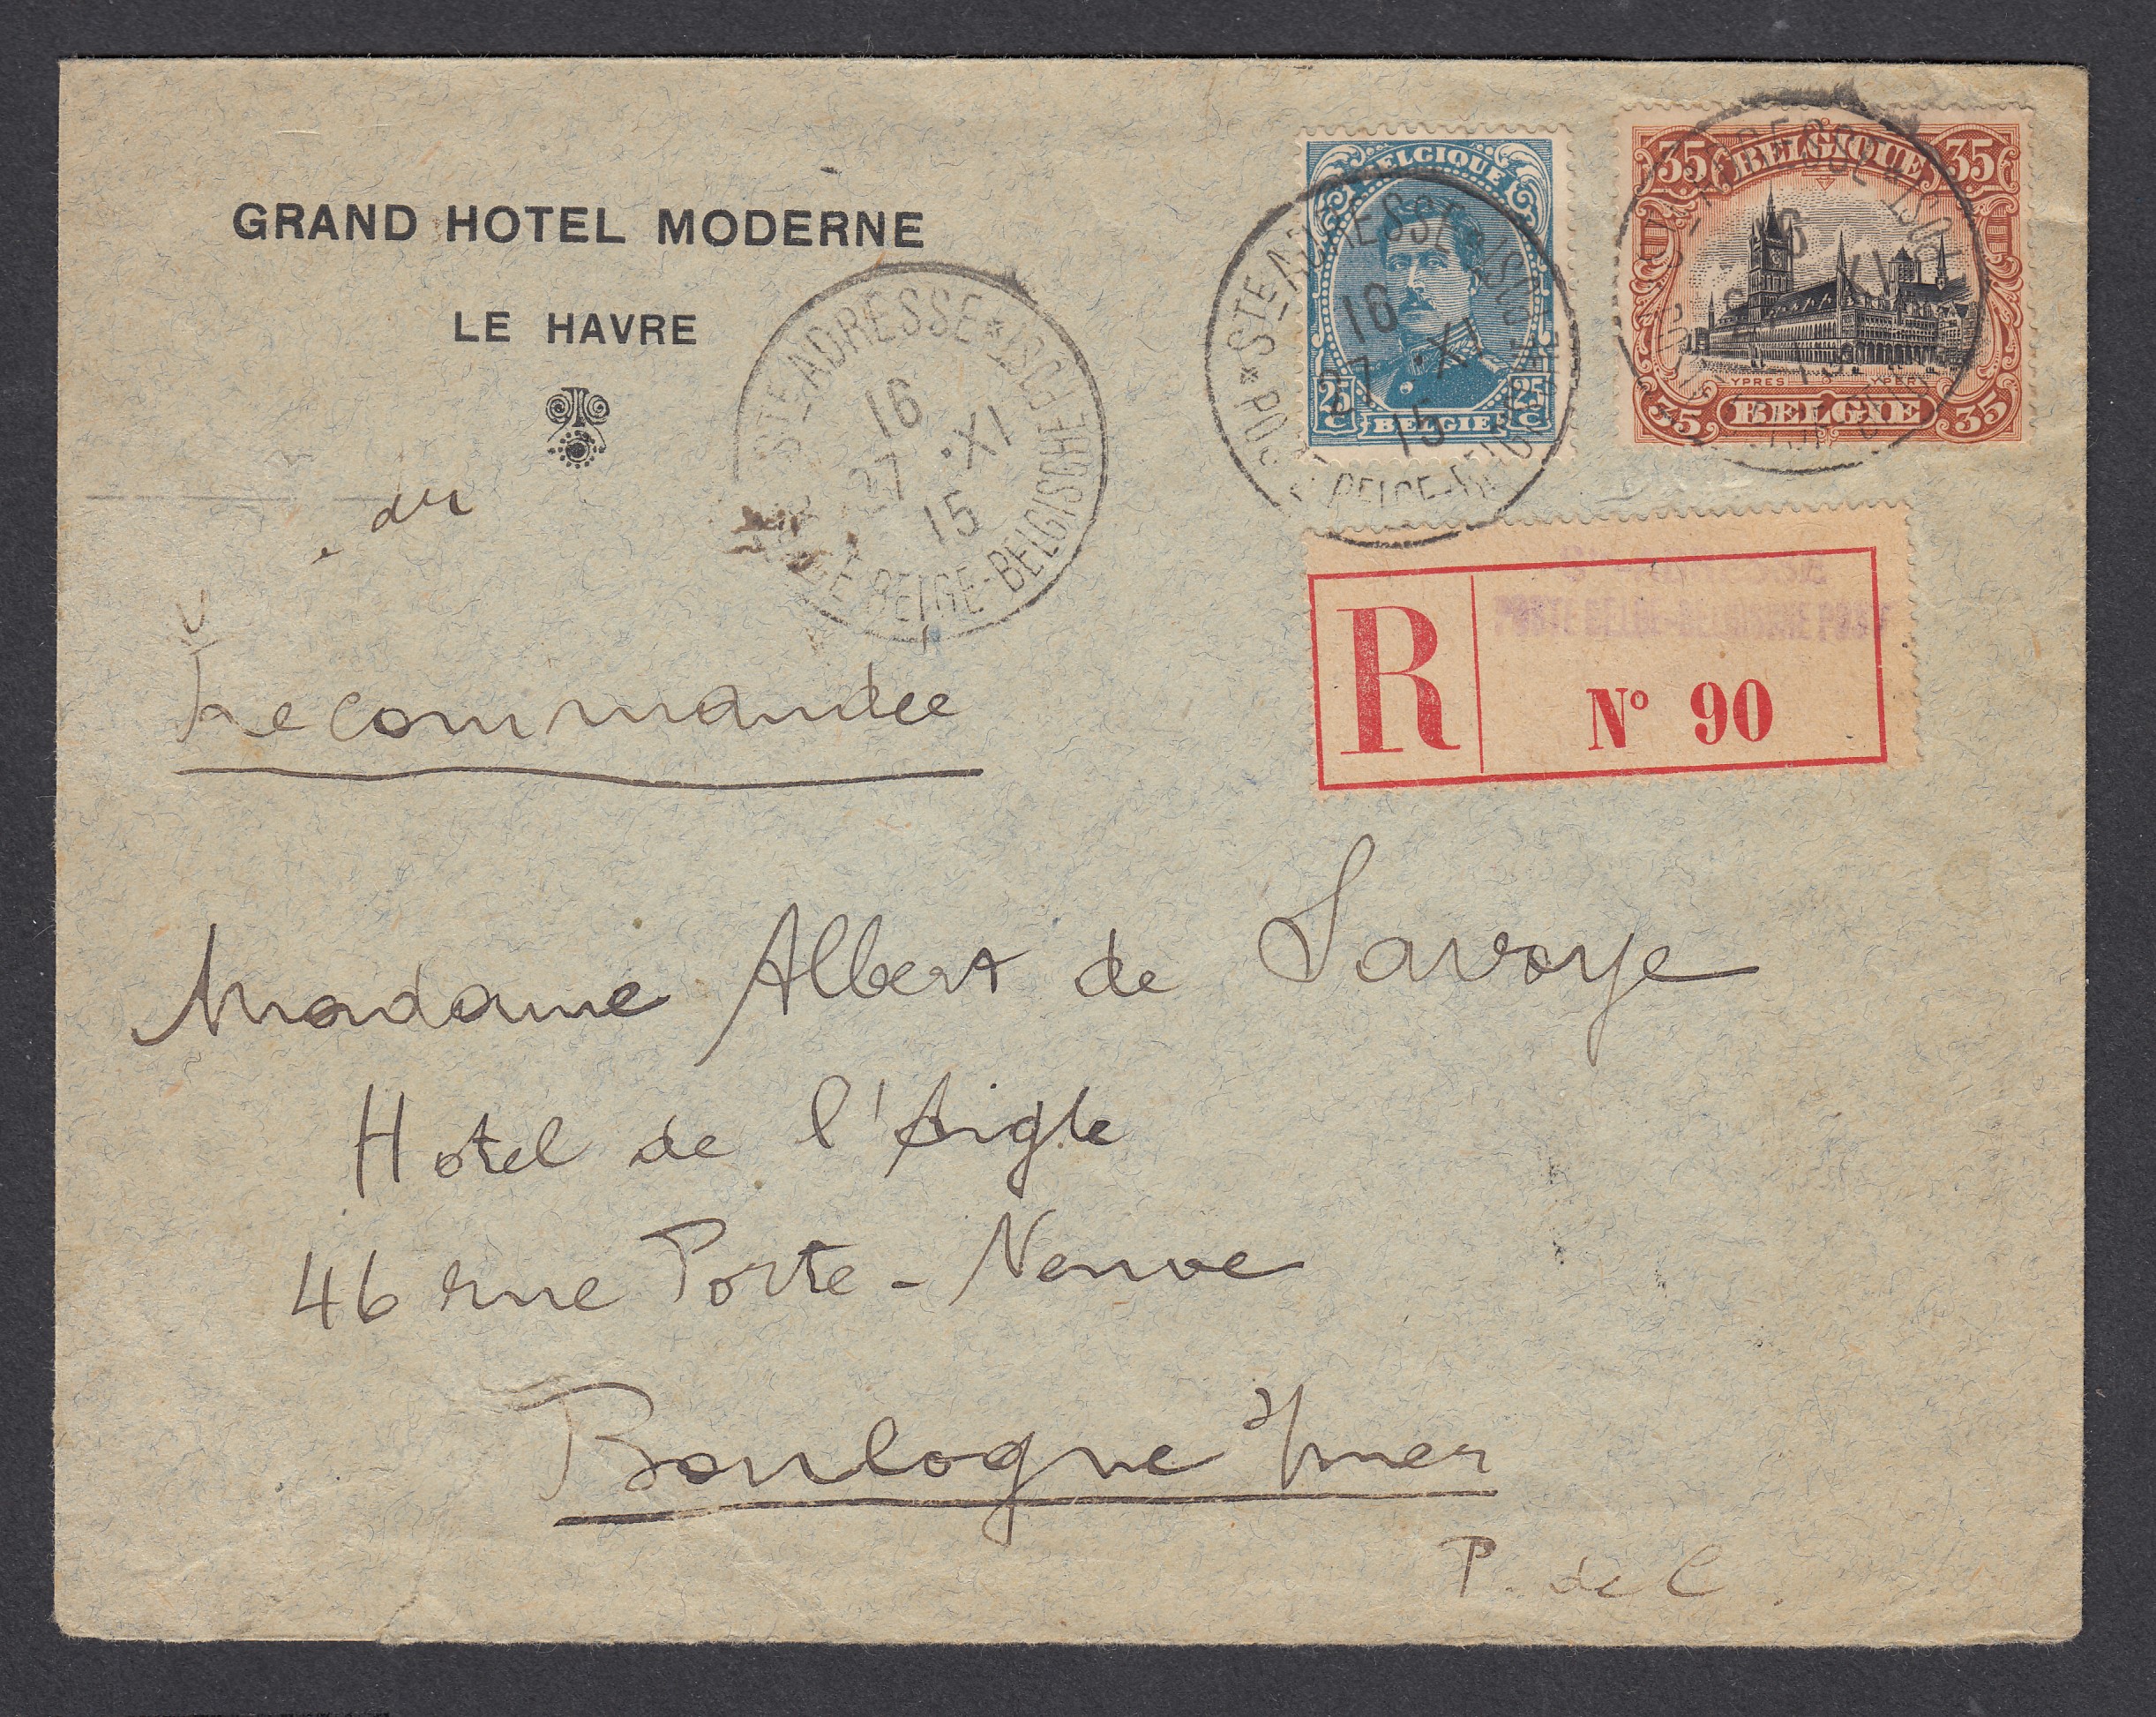 GRAND HOTEL MODERNE
LE HAVRE
STE ADRESSE
16
27 .XI
15
BELGE-BELGISCHE
BELGIQUE
25 C
25 C
BELGIE
STE ADRESSE
16
27 .XI
15
35 BELGIQUE 35
YPRES YPER
35 BELGIE 35
R
POSTE BELGE-BELGISCHE POST
Nº 90
Recommandée
Madame Albert de Savoye
Hotel de l'Aigle
46 rue Porte-Neuve
Boulogne s/mer
P. de C.